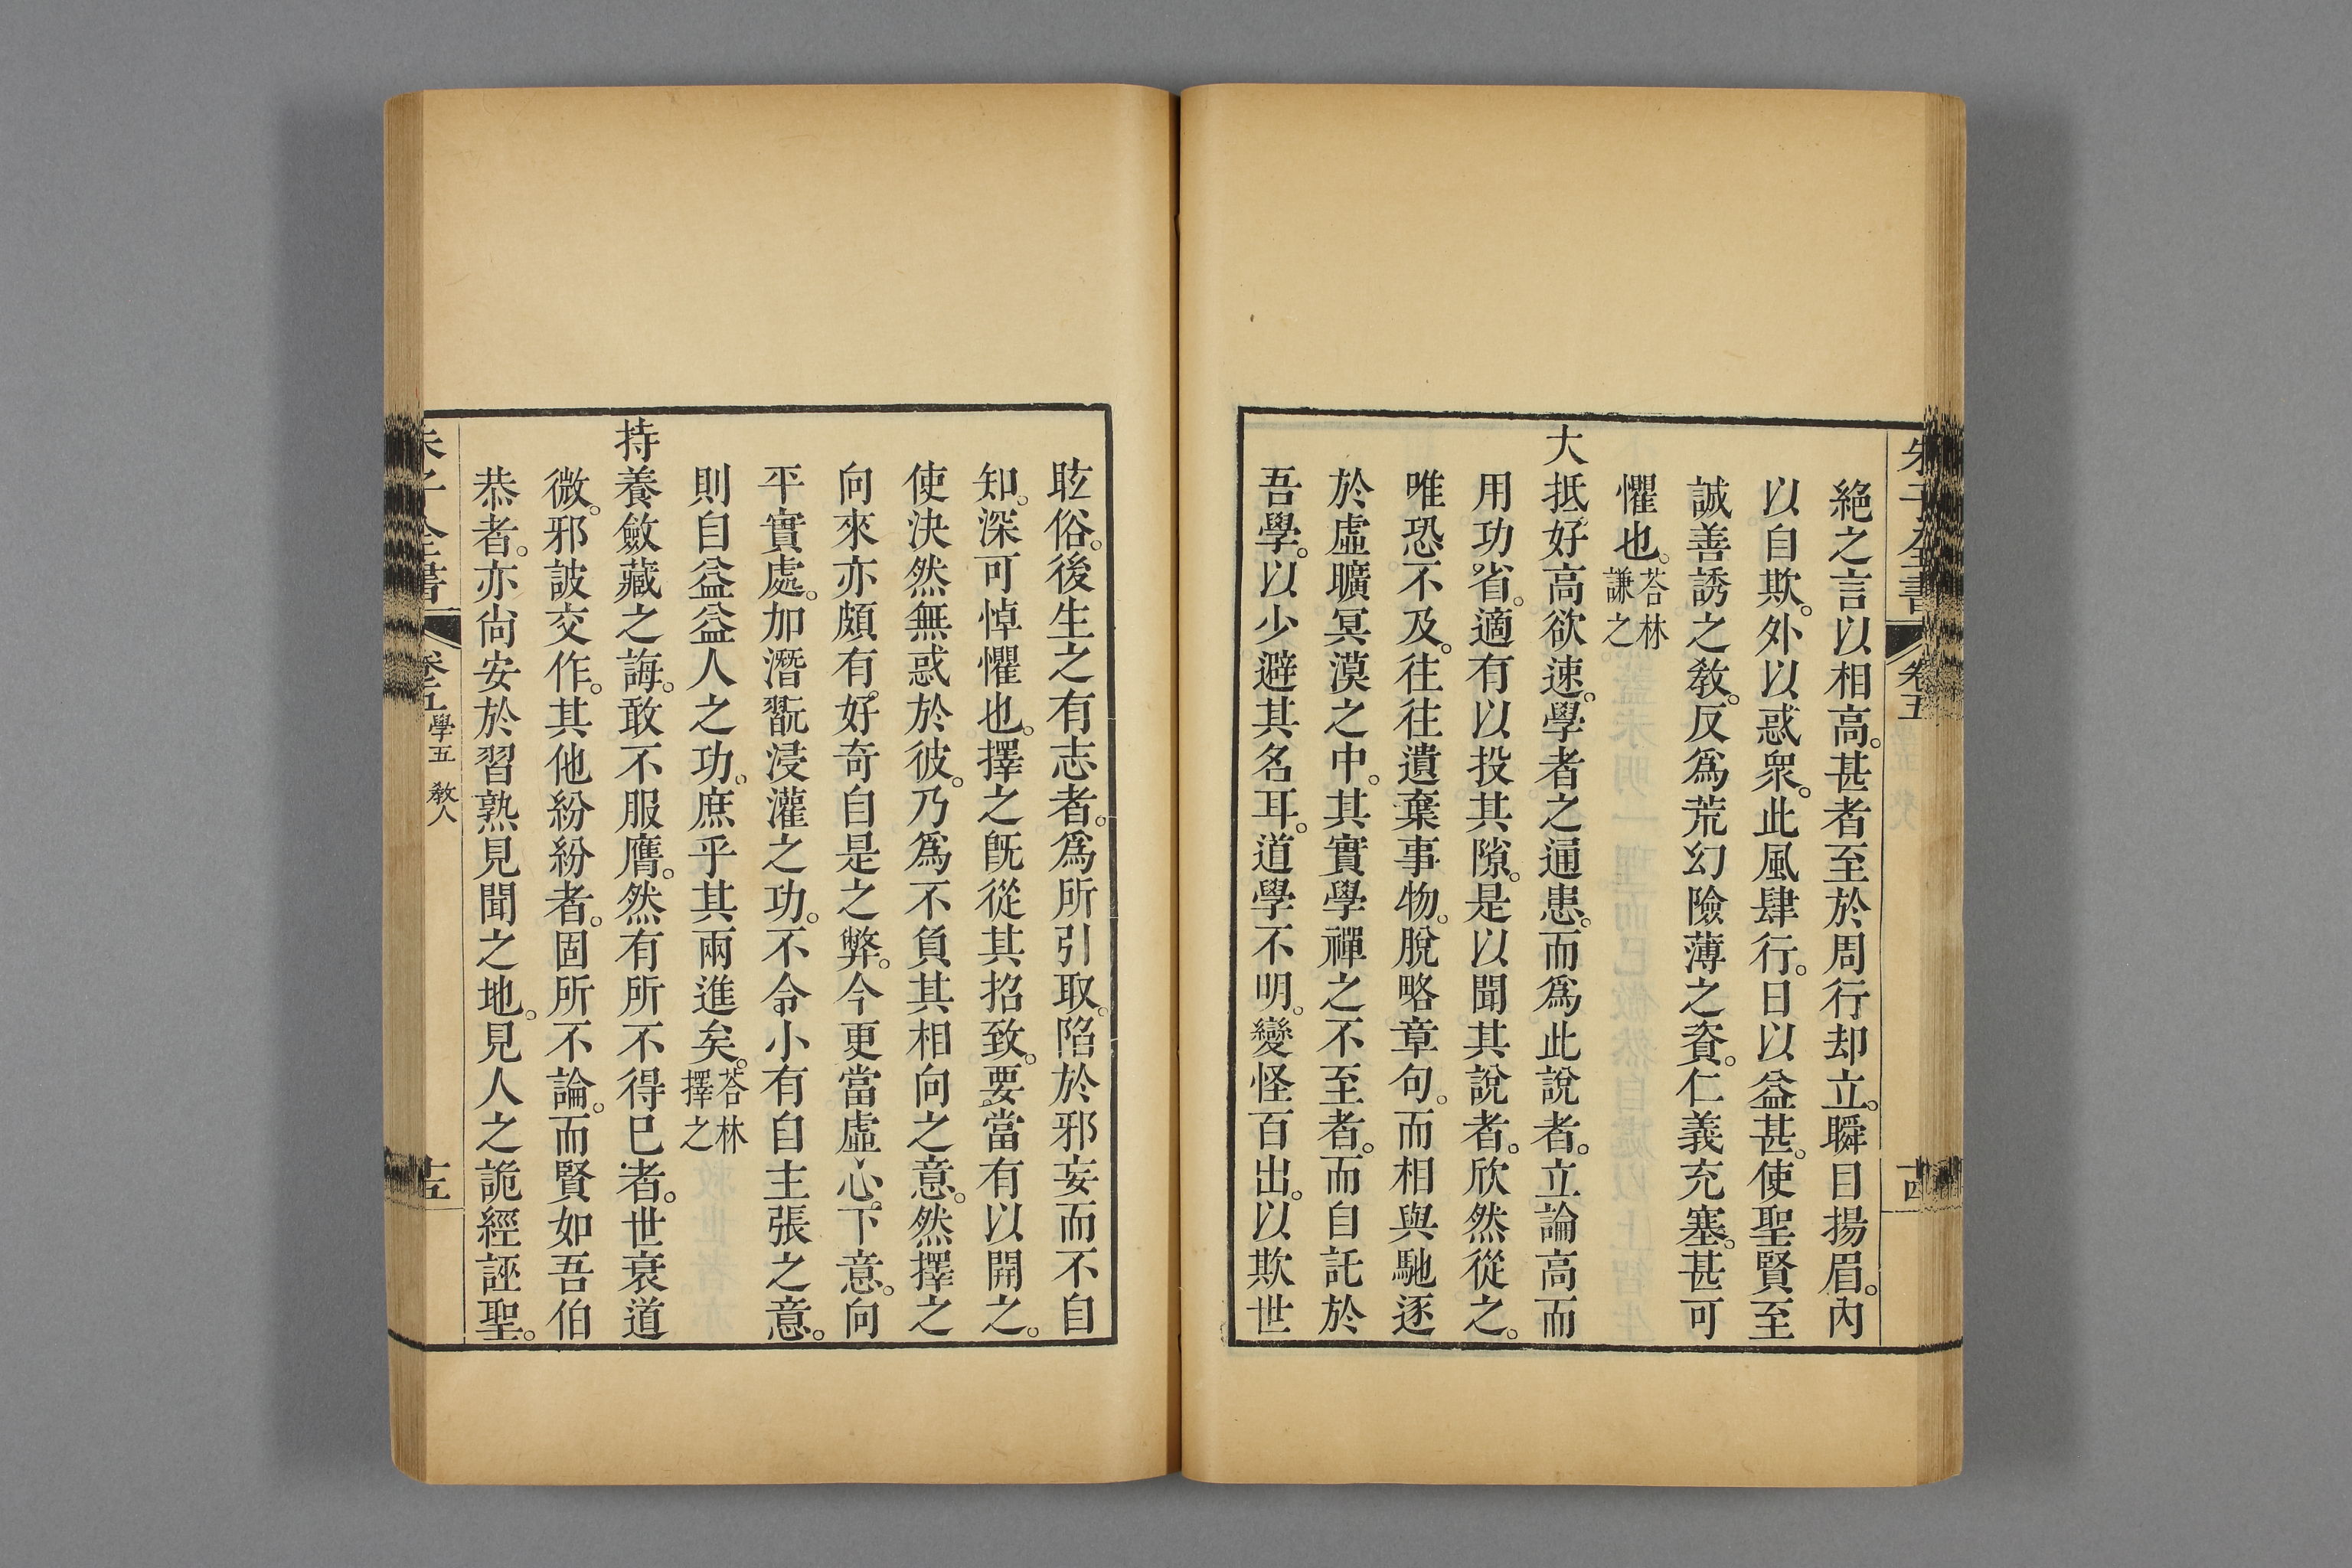 朱子全書 卷五 十四
絶之言以相高。甚者至於周行却立。瞬目揚眉。內
以自欺。外以惑衆。此風肆行。日以益甚。使聖賢至
誠善誘之敎。反爲荒幻險薄之資。仁義充塞。甚可
懼也。荅林謙之
大抵好高欲速。學者之通患。而爲此說者。立論高而
用功省。適有以投其隙。是以聞其說者。欣然從之。
唯恐不及。往往遺棄事物。脫略章句。而相與馳逐
於虛曠冥漠之中。其實學禪之不至者。而自託於
吾學。以少避其名耳。道學不明。變怪百出。以欺世
眩俗。後生之有志者。爲所引取。陷於邪妄而不自
知。深可悼懼也。擇之旣從其招致。要當有以開之。
使決然無惑於彼。乃爲不負其相向之意。然擇之
向來亦頗有好奇自是之弊。今更當虛心下意。向
平實處。加潛翫浸灌之功。不令小有自主張之意。
則自益益人之功。庶乎其兩進矣。荅林擇之
持養斂藏之誨。敢不服膺。然有所不得已者。世衰道
微。邪詖交作。其他紛紛者。固所不論。而賢如吾伯
恭者。亦尙安於習熟見聞之地。見人之詭經誣聖。
朱子全書 卷五 學五 敎人 十五